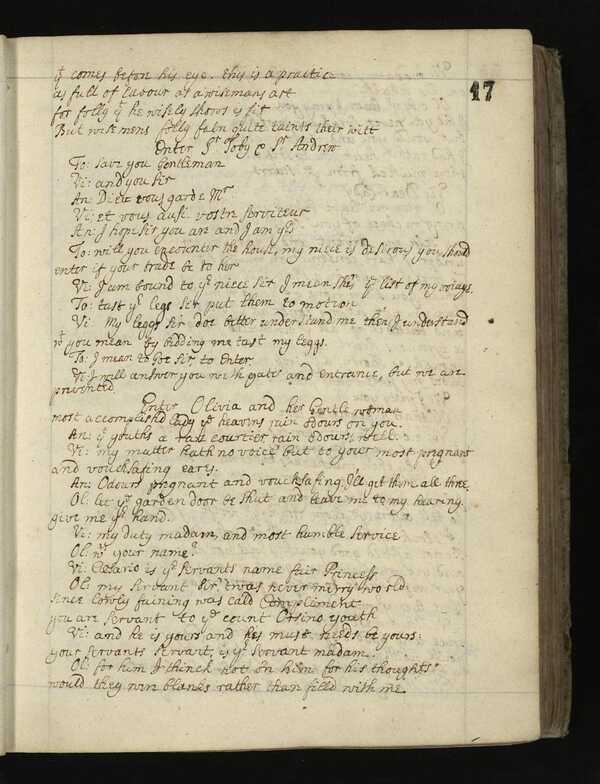 yt comes before his eye. this is a practice
17
as full of labour as a wisemans art
for folly yt he wisely shows is fit
But wise mens folly faln quite taints their witt
Enter Sr Toby & Sr Andrew
To: save you Gentleman
Vi: and you Sir
An: Dieu vous garde Mr
Vi: et vous ausi vostre serviteur
An: I hope sir you are and I am yrs
To: will you encounter the house, my niece is desirous you should
enter if your trade be to her
Vi: I am bound to yr niece sir I mean she's ye list of my voiage.
To: tast yr legs sir put them to motion
Vi: My leggs sir doe better understand me then I understand
wt you mean by bidding me tast my leggs.
To: I mean to goe sir to enter
Vi: I will answer you with gate and entrance, but we are
prevented.
Enter Olivia and her Gentle woman
most accomplishd Lady ye heavens rain odours on you.
An: yt youths a courtier rain odours, well.
Vi: my matter hath no voice but to your most pregnant
and vouchsafing eare.
An: Odours pregnant and vouchsafing, I'll get them all three.
Ol: let ye garden door be shut and leave me to my hearing.
give me yr hand.
Vi: my duty madam, and most humble service
Ol: wt your name?
Vi: Cesario is yr servants name fair Princess
Ol: my servant Sir? twas never merry world
since lowly faining was cald Complement
you are servant to ye count Orsino youth
Vi: and he is yours and his must needs be yours:
your servants servant, is yr servant madam.
Ol: for him I thinck not on him for his thoughts
would they were blanks rather than filled with me.